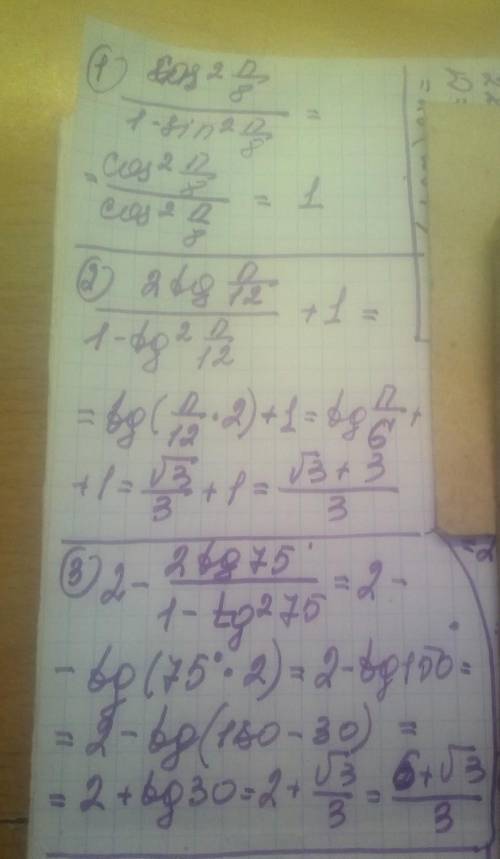 1) cos² π/8 / 1-sin² π/8 =
= cos² π/8 / cos² π/8 = 1
2) 2tg π/12 / 1-tg² π/12 + 1 =
= tg(π/12 · 2) + 1 = tg π/6 +
+ 1 = √3/3 + 1 = √3 + 3 / 3
3) 2 - 2tg75° / 1 - tg²75 = 2 -
- tg(75° · 2) = 2 - tg150 =
= 2 - tg(180 - 30) =
= 2 + tg30 = 2 + √3/3 = 6 + √3 / 3